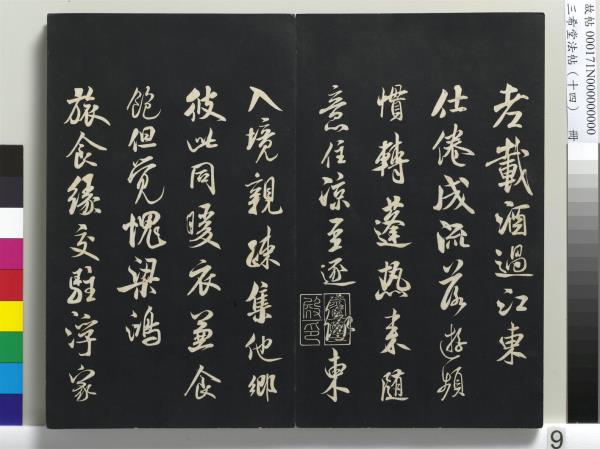 故帖 000171N000000000
三希堂法帖（十四） 冊
老載酒過江東
仕倦成流落遊頻
慣轉蓬熱來随
意住涼至逐東
入境親疎集他鄉
彼此同暖衣兼食
飽但覺愧梁鴻
旅食緣交駐浮家
9